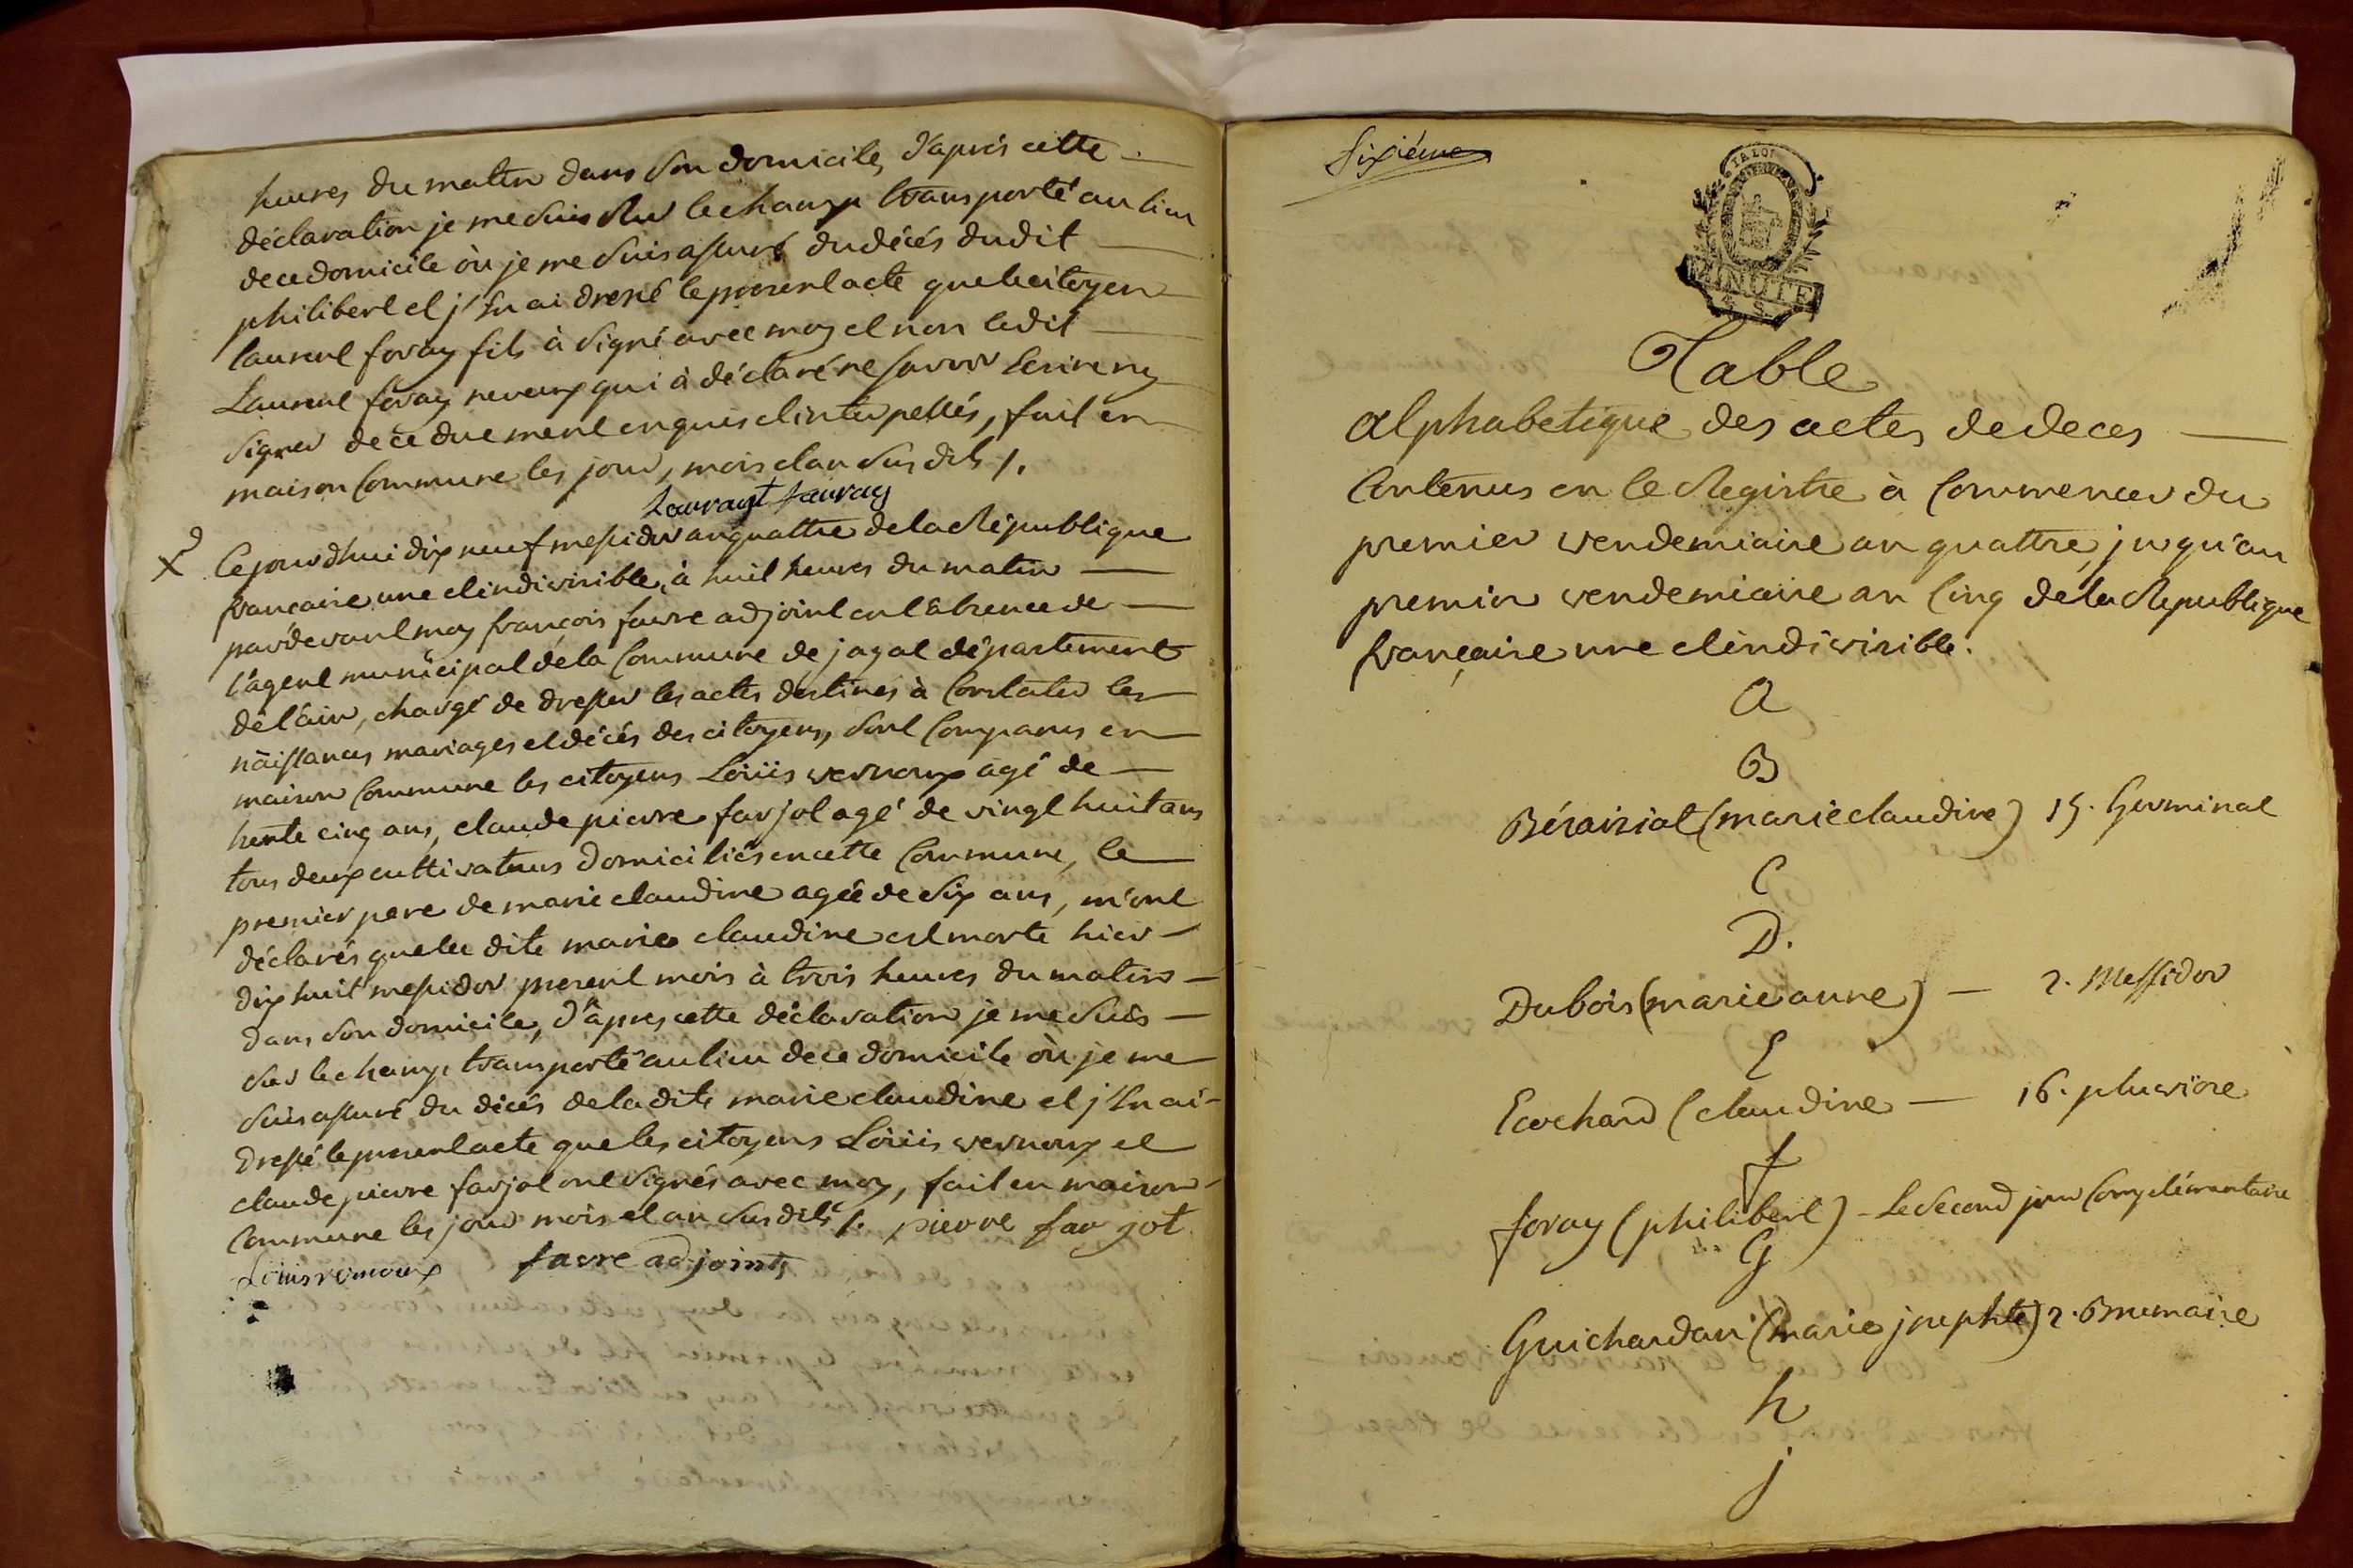 heures du matin dans son domicile, d'après cette
déclaration je me suis sur le champ transporté au lieu
de ce domicile où je me suis assuré du décés dudit
philibert et j'en ai dressé le present acte que le citoyen
laurent foray fils à signé avec moy et non ledit
Laurent foray neveux qui à déclaré ne savoir Ecrire ny
signer de ce duement enquis et interpellés, fait en
maison Commune les jour, mois et an susdits /.
Lourant fauray
X Cejourd'hui dix neuf messidor an quattre de la République
francaise une et indivisible, à huit heures du matin
pardevant moy francois favre adjoint en l'absence de
l'agent municipal de la Commune de jayat département
de l'ain, chargé de dresser les actes destines à Constater les
naissances mariages et décés des citoyens, sont Comparus en
maison Commune les citoyens Loüis vernoux agé de
trente cinq ans, claude pierre farjot agé de vingt huit ans
tous deux cultivateurs domiciliés en cette Commune, le
premier pere de marie claudine agée de six ans, m'ont
déclarés que la dite marie claudine est morte hier
dix huit messidor present mois à trois heures du matin
dans son domicile, d'apres cette déclaration je me suis
sur le champ transporté au lieu de ce domicile où je me
suis assuré du décés de la dite marie claudine et j'en ai
dressé le present acte que les citoyens Loüis vernoux et
claude pierre farjot ont signés avec moy, fait en maison
Commune les jour mois et an susdits /. pierre far got
Louis vernoux favre adjoint
Sixiéme
LA LOI
MINUTE
Table
alphabetique des actes de deces
Contenus en le Registre à Commencer du
premier vendemiaire an quattre, jusqu'au
premier vendemiaire an Cinq de la Republique
française une et indivisible.
A
B
(marie claudine) 15. Germinal
C
D.
Dubois (marie anne) — 2. Messidor
E
Ecochard (claudine — 16. pluviôse
f
foray (philibert) - Le second jour Complémentaire
G
Guichardan (marie josephte) 2. Brumaire
h
j